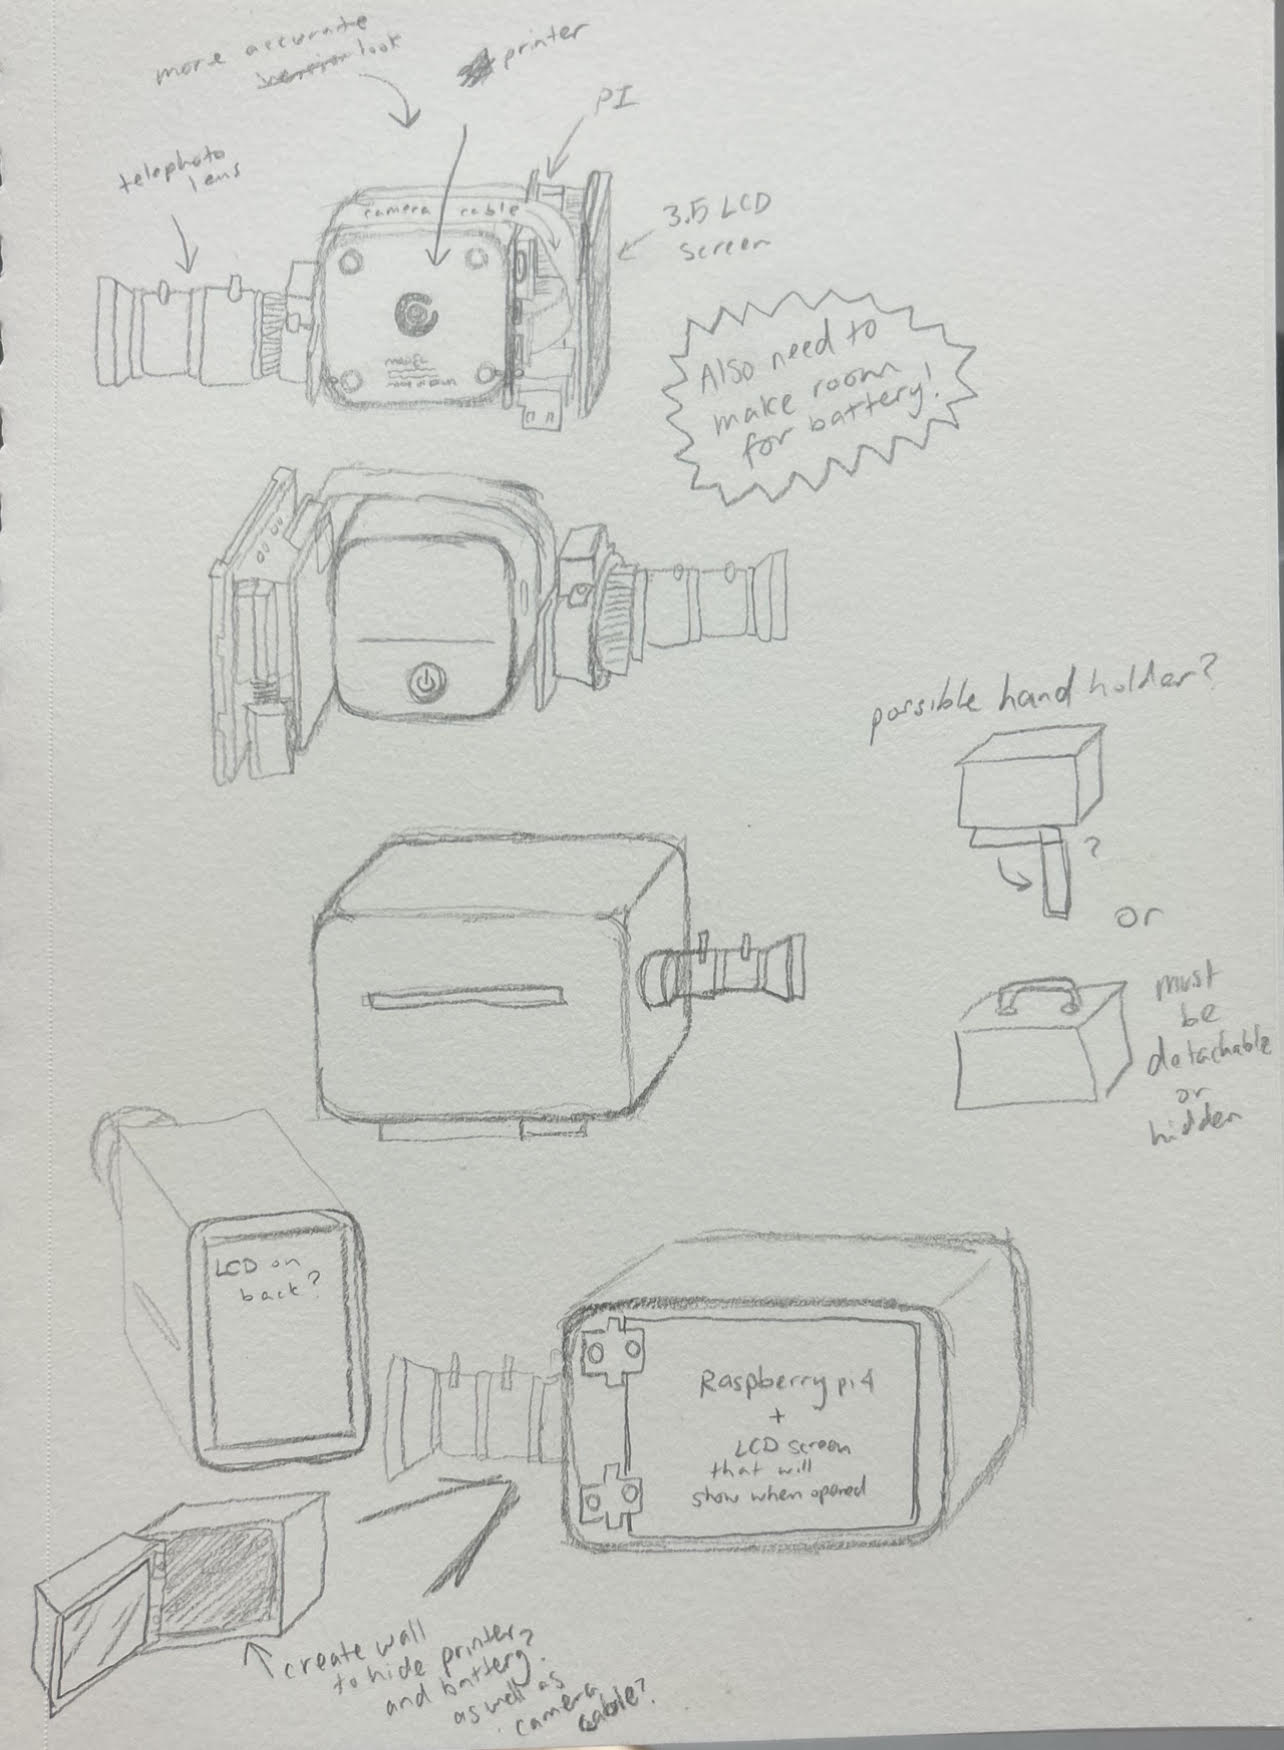 more accurate
look
printer
PI
telephoto
lens
camera cable
3.5 LCD
screen
Also need to
make room
for battery!
possible hand holder?
?
or
must
be
detachable
or
hidden
LCD on
back?
Raspberry pi 4
+
LCD screen
that will
show when opened
create wall
to hide printer?
and battery?
as well as
camera
cable?